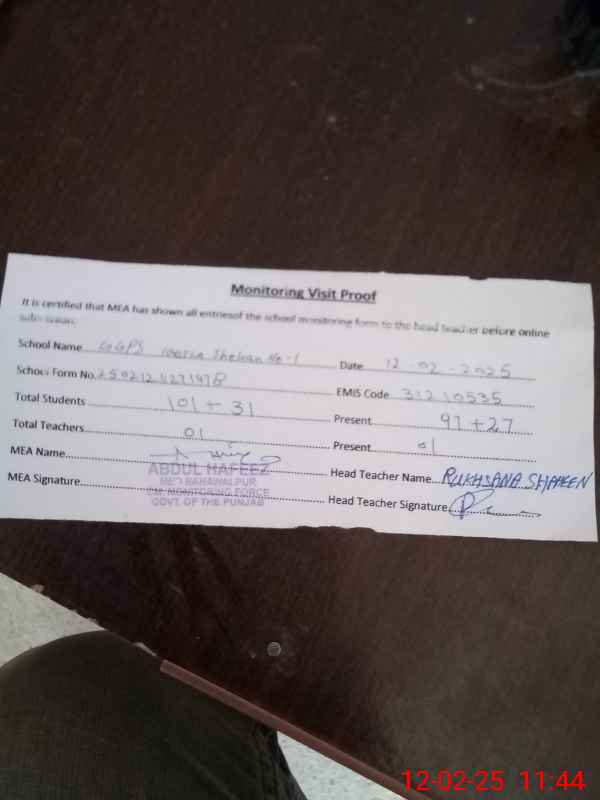 Monitoring Visit Proof
It is certified that MEA has shown all entriesof the school monitoring form to the head teacher before online
submission.
School Name GGPS Sheikhan No-1 Date 12-02-2025
School Form No. EMIS Code 31210535
Total Students 101+31 Present 97+27
Total Teachers 01 Present 01
MEA Name Head Teacher Name RUKHSANA SHAHEEN
ABDUL HAFEEZ
MEA BAHAWALPUR
MEA Signature Head Teacher Signature
CM MONITORING FORCE
GOVT. OF THE PUNJAB
12-02-25 11:44